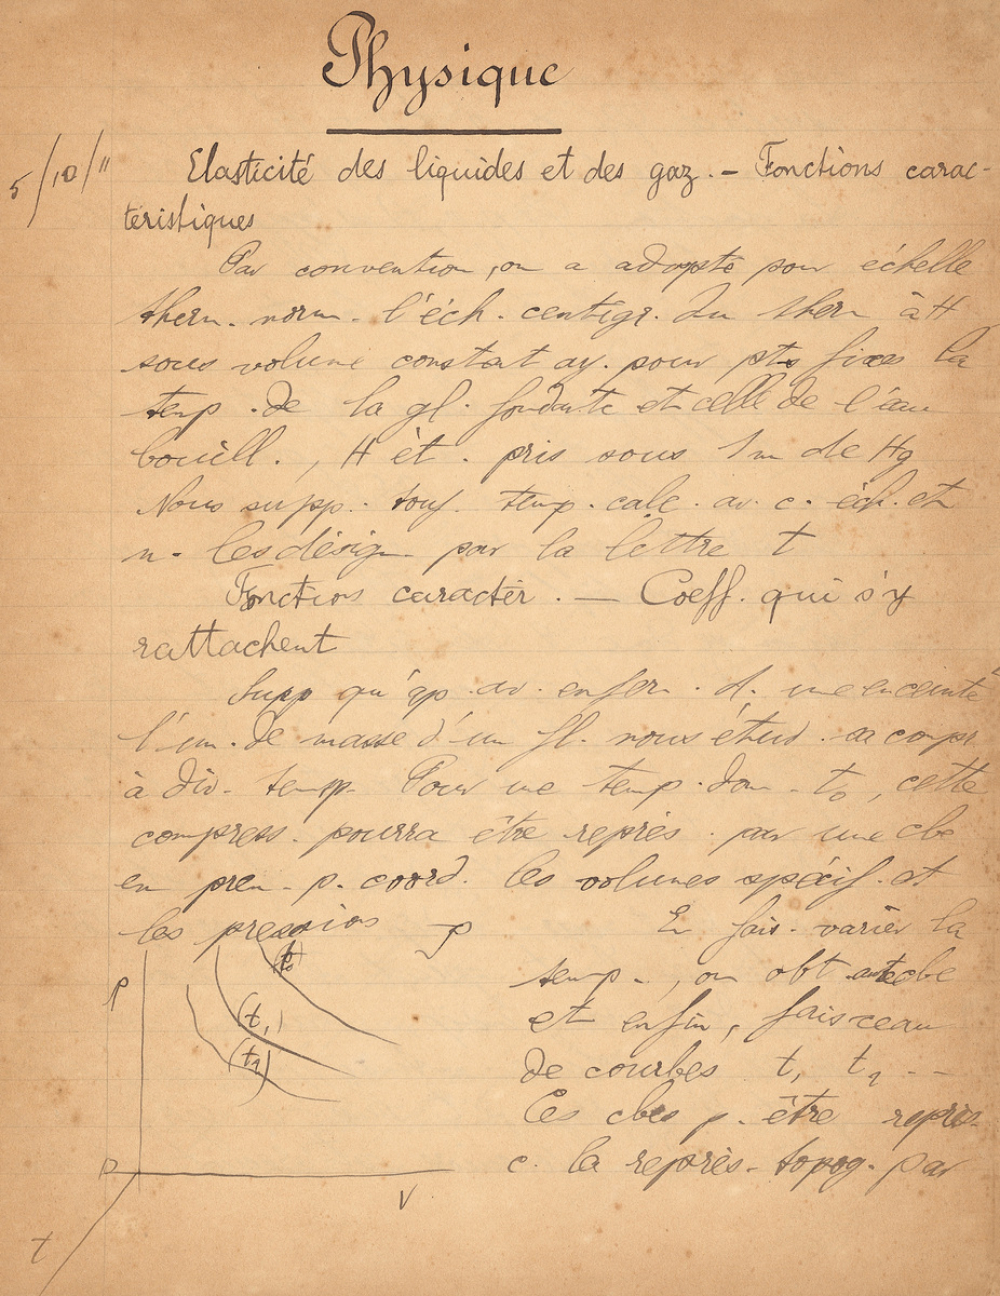 Physique
5/10/"
Elasticité des liquides et des gaz. - Fonctions carac-
téristiques
Par convention, on a adopté pour échelle
therm. norm. l'éch. centigr. du therm à H
sous volume constant ay. pour pts fixes la
temp. de la gl. fondante et celle de l'eau
bouill., H ét. pris sous 1m de Hg
Nous supp. touj. temp. calc. av. c. éch. et
n. les désign. par la lettre t
Fonctions caractér. — Coeff. qui s'y
rattachent
Supp qu'on av. enferm. d. une enceinte
l'un. de masse d'un fl. nous étud. sa compr
à div. temp. Pour une temp. don. t₀, cette
compress. pourra être représ. par une cbe
en pren. p. coord. les volumes spécif. et
les pressions p En fais. varier la
temp., on obt. autre cbe
et enfin, faisceau
de courbes t₁ t₂ --
Ces cbes p. être représ.
c. la représ. topog. par
P
(t₀)
(t₁)
(t₂)
O
V
t